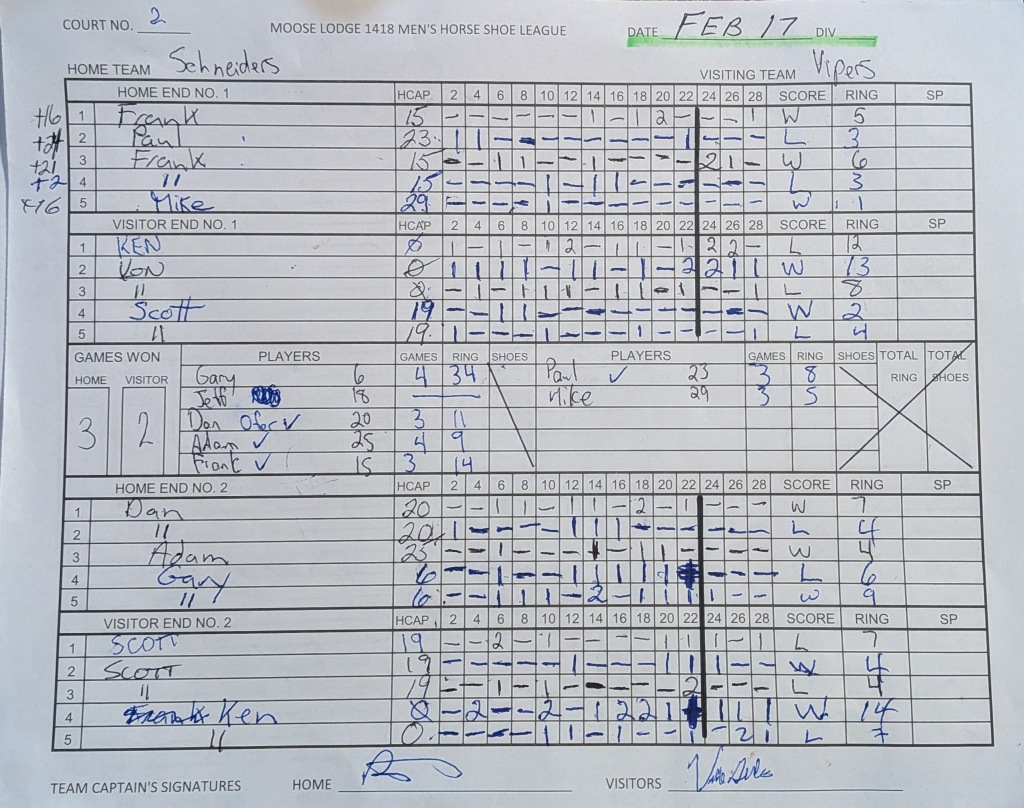 COURT NO. 2
MOOSE LODGE 1418 MEN'S HORSE SHOE LEAGUE
DATE FEB 17 DIV
HOME TEAM Schneiders
VISITING TEAM Vipers
HOME END NO. 1 HCAP 2 4 6 8 10 12 14 16 18 20 22 24 26 28 SCORE RING SP
+16 1 Frank 15 - - - - - - 1 - 1 2 - - - 1 W 5
2 Paul 23 1 1 - - - - - - - - 1 - - - L 3
+21 3 Frank 15 - - 1 1 - - 1 - - - - 2 1 - W 6
+2 4 " 15 - - - - 1 - 1 1 - - - - - - L 3
5 Mike 29 - - - - 1 - - - - - - - - - W 1
VISITOR END NO. 1 HCAP 2 4 6 8 10 12 14 16 18 20 22 24 26 28 SCORE RING SP
1 KEN 0 1 - 1 - 1 2 - 1 1 - 1 2 2 - L 12
2 VON 0 1 1 1 1 - 1 1 - 1 - 2 2 1 1 W 13
3 " 0 - 1 - 1 1 1 - 1 1 - 1 - - 1 L 8
4 Scott 19 - - 1 1 - - - - - - - - - - W 2
5 " 19 1 - - - 1 - - - 1 - - - - 1 L 4
GAMES WON PLAYERS GAMES RING SHOES PLAYERS GAMES RING SHOES TOTAL RING TOTAL SHOES
HOME VISITOR
3 2
Gary 6 4 34 Paul ✓ 23 3 8
Jeff 18 Mike 29 3 5
Dan Ofer ✓ 20 3 11
Adam ✓ 25 4 9
Frank ✓ 15 3 14
HOME END NO. 2 HCAP 2 4 6 8 10 12 14 16 18 20 22 24 26 28 SCORE RING SP
1 Dan 20 - - 1 1 - 1 1 - 2 - 1 - - - W 7
2 " 20 1 - - - - 1 1 1 - - - - - - L 4
3 Adam 25 - - 1 - - - 1 - 1 1 - - - - W 4
4 Gary 6 - - 1 - - 1 1 1 1 1 - - - L 6
5 " 6 - - 1 1 - 1 2 - 1 1 1 1 - - W 9
VISITOR END NO. 2 HCAP 2 4 6 8 10 12 14 16 18 20 22 24 26 28 SCORE RING SP
1 SCOTT 19 - - 2 - 1 - - - - 1 1 1 - 1 L 7
2 SCOTT 19 - - - - - 1 - - - 1 1 1 - - W 4
3 " 19 - - 1 - 1 - - - - - 2 - - - L 4
4 Ken 0 - 2 - - 2 - 1 2 2 1 1 1 1 W 14
5 " 0 - - - - 1 1 - 1 - - 1 - 2 1 L 7
TEAM CAPTAIN'S SIGNATURES HOME VISITORS